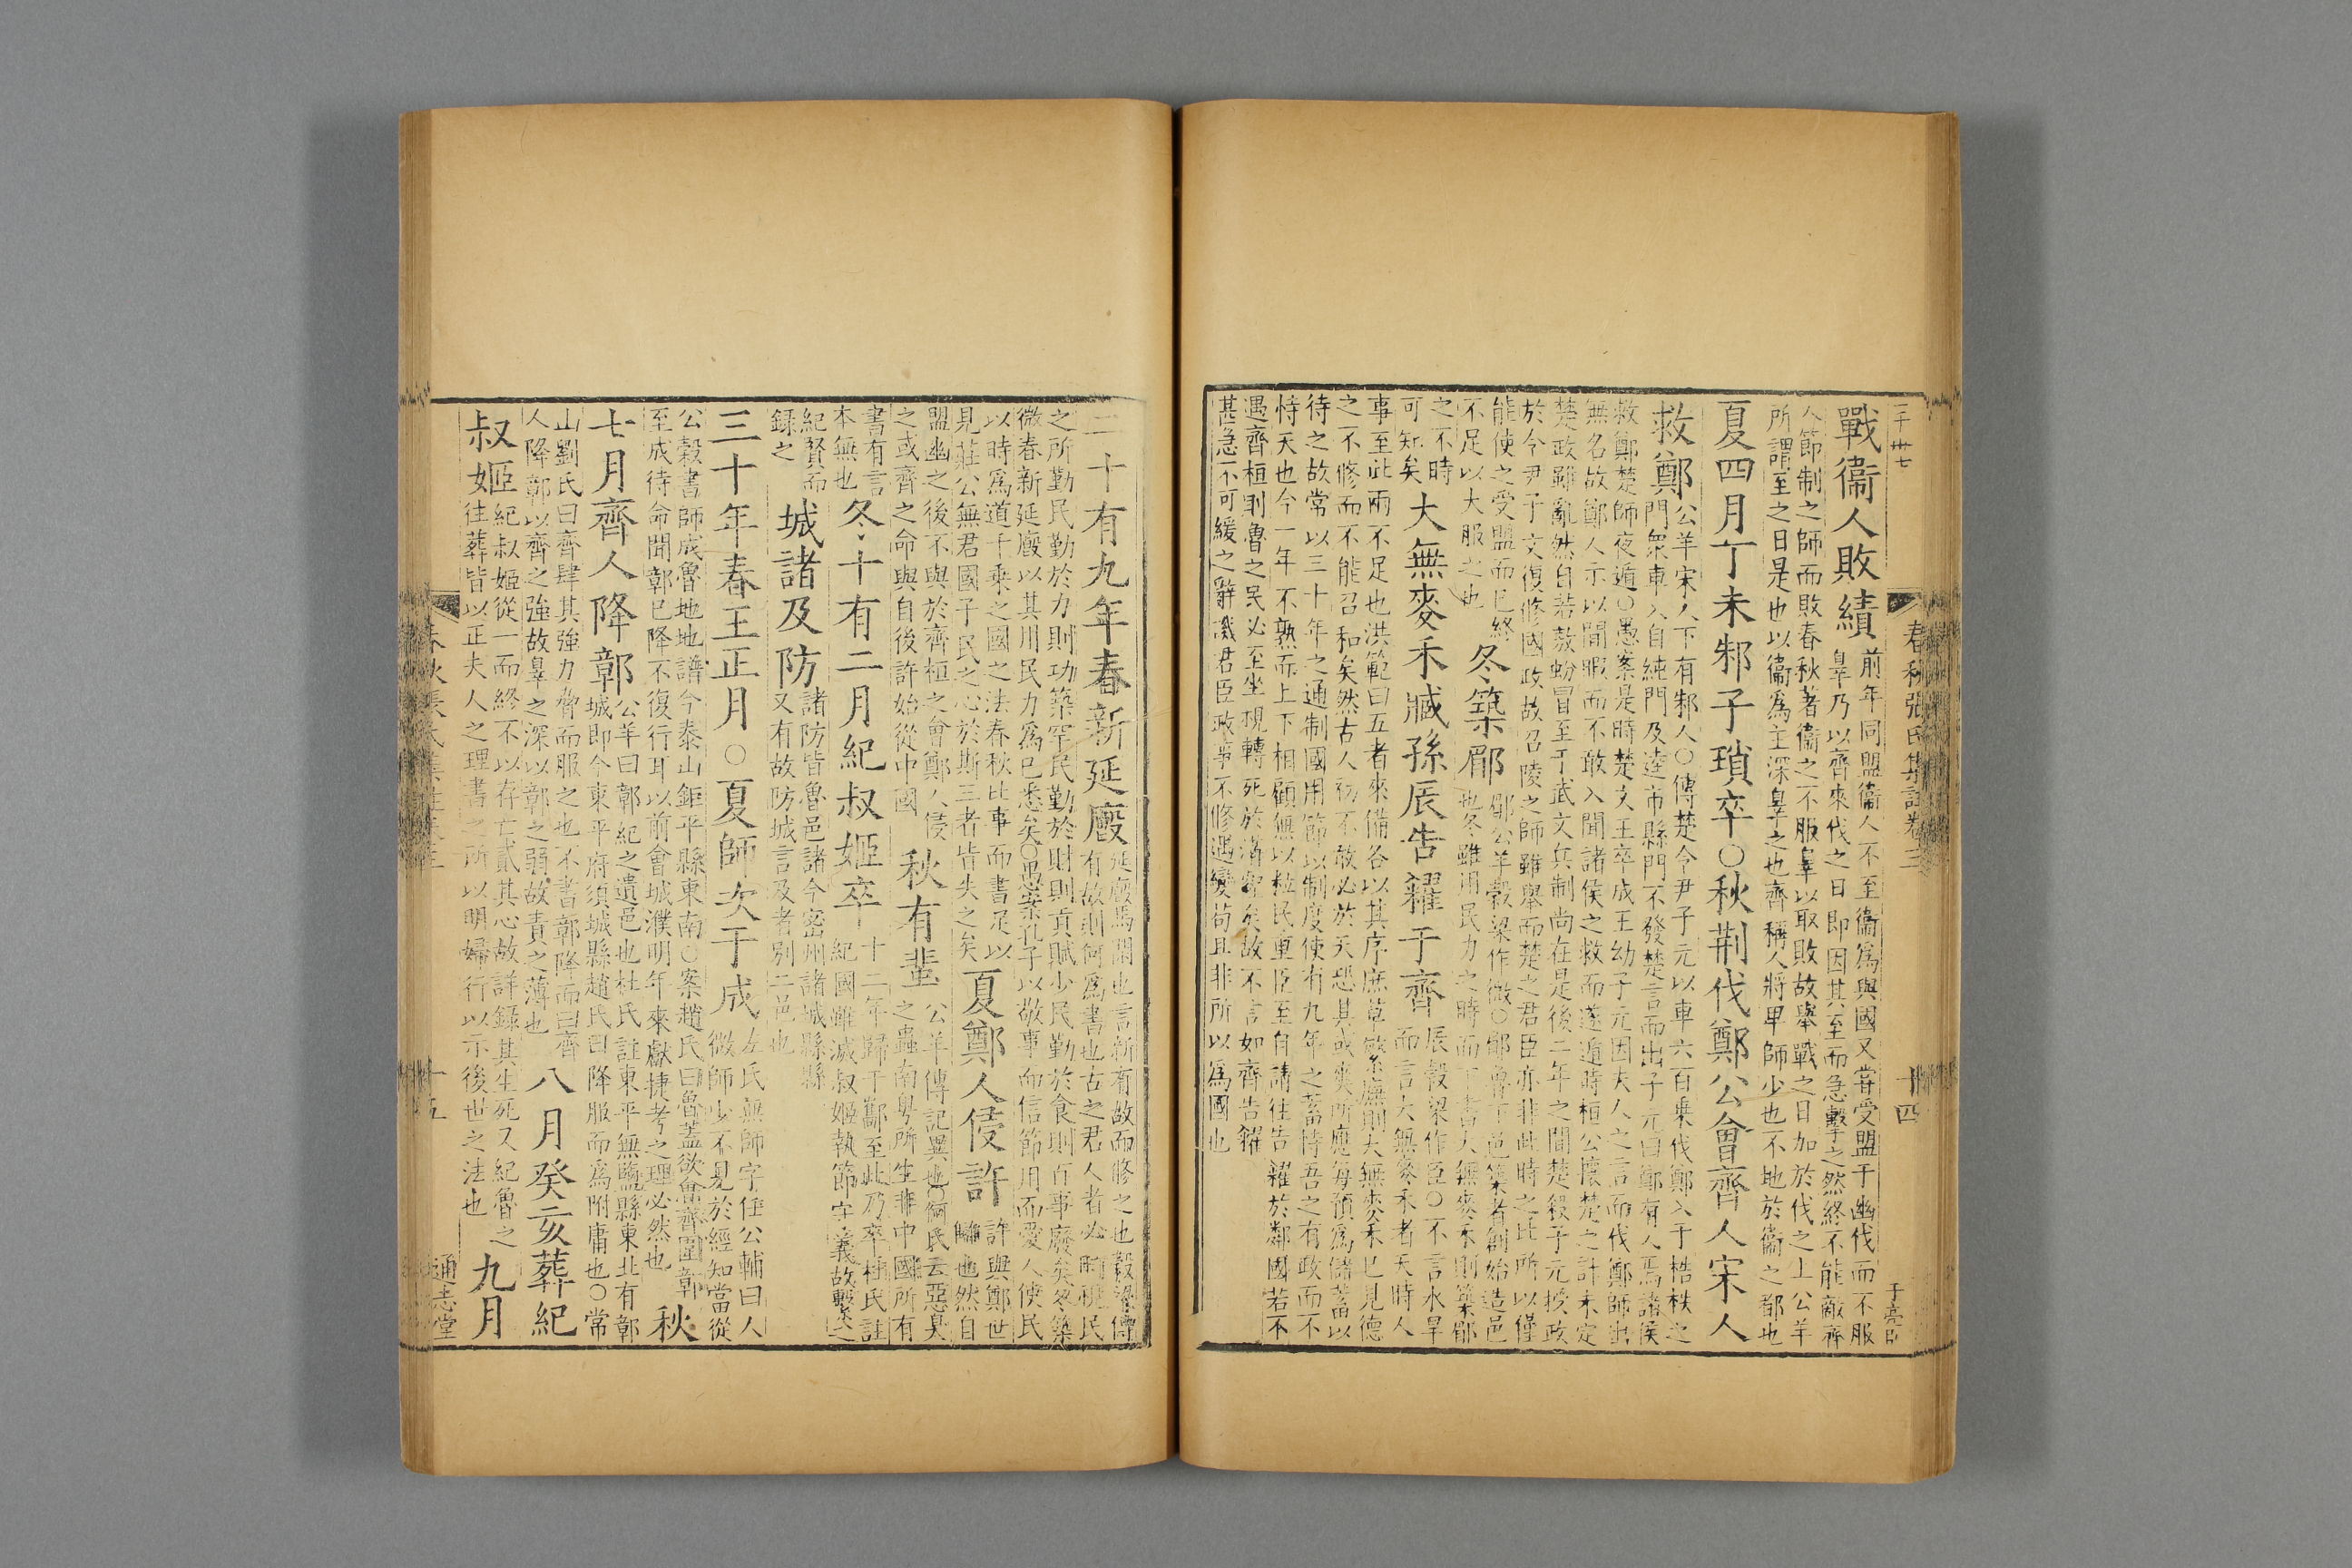 千卅七
春秋張氏集註卷三
十四
于亮臣
戰衞人敗績
前年同盟衞人不至衞為與國又嘗受盟于幽伐而不服
辠乃以齊來伐之日即因其至而急擊之然終不能敵齊
人節制之師而敗春秋著衞之不服辠以取敗故舉戰之日加於伐之上公羊
所謂至之日是也以衞為主深辠之也齊稱人將卑師少也不地於衞之都也
夏四月丁未邾子瑣卒○秋荆伐鄭公會齊人宋人
救鄭
公羊宋人下有邾人○傳楚令尹子元以車六百乗伐鄭入于桔柣之
門衆車入自純門及逵市縣門不發楚言而出子元曰鄭有人焉諸侯
救鄭楚師夜遁○愚案是時楚文王卒成王幼子元因夫人之言而伐鄭師出
無名故鄭人示以閒暇而不敢入聞諸侯之救而遂遁時桓公懷楚之計未定
楚政雖亂然自若敖蚡冒至于武文兵制尚在是後二年之間楚殺子元授政
於令尹子文復修國政故召陵之師雖舉而楚之君臣亦非此時之比所以僅
能使之受盟而已終
不足以大服之也
冬築郿
郿公羊穀梁作微○郿魯下邑築者創始造邑
也冬雖用民力之時而下書大無麥禾則築郿
之不時
可知矣
大無麥禾臧孫辰告糴于齊
辰穀梁作臣○不言水旱
而言大無麥禾者天時人
事至此兩不足也洪範曰五者來備各以其序庶草繁廡則大無麥禾已見德
之不修而不能召和矣然古人初不敢必於天恐其或爽所應每預為儲蓄以
待之故常以三十年之通制國用節以制度使有九年之蓄恃吾之有政而不
恃天也今一年不熟而上下相顧無以粒民重臣至自請往告糴於鄰國若不
遇齊桓則魯之民必至坐視轉死於溝壑矣故不言如齊告糴
甚急不可緩之辭譏君臣政事不修遇變苟且非所以為國也
二十有九年春新延廏
延廏馬閑也言新有故而修之也穀梁傳
有故則何為書也古之君人者必時視民
之所勤民勤於力則功築罕民勤於財則貢賦少民勤於食則百事廢矣冬築
微春新延廏以其用民力為已悉矣○愚案孔子以敬事而信節用而愛人使民
以時為道千乗之國之法春秋比事而書足以
見莊公無君國子民之心於斯三者皆失之矣
夏鄭人侵許
許與鄭世
讎也然自
盟幽之後不與於齊桓之會鄭人侵
之或齊之命與自後許始從中國
秋有蜚
公羊傳記異也○何氏云惡臭
之蟲南粤所生非中國所有
書有言
本無也
冬十有二月紀叔姬卒
十二年歸于酅至此乃卒杜氏註
紀國雖滅叔姬執節守義故繫之
紀賢而
録之
城諸及防
諸防皆魯邑諸今密州諸城縣縣
又有故防城言及者别二邑也
三十年春王正月○夏師次于成
左氏無師字任公輔曰人
微師少不見於經知當從
公穀書師成魯地地譜今泰山鉅平縣東南○案趙氏曰魯蓋欲會齊圍鄣
至成待命聞鄣已降不復行耳以前會城濮明年來獻捷考之理必然也
秋
七月齊人降鄣
公羊曰鄣紀之遺邑也杜氏註東平無鹽縣東北有鄣
城即今東平府須城縣趙氏曰降服而為附庸也○常
山劉氏曰齊肆其強力脅而服之也不書鄣降而曰齊
人降鄣以齊之強故辠之深以鄣之弱故責之薄也
八月癸亥葬紀
叔姬
紀叔姬從一而終不以存亡貳其心故詳録其生死又紀魯之
往葬皆以正夫人之理書之所以明婦行以示後世之法也
九月
十五
通志堂